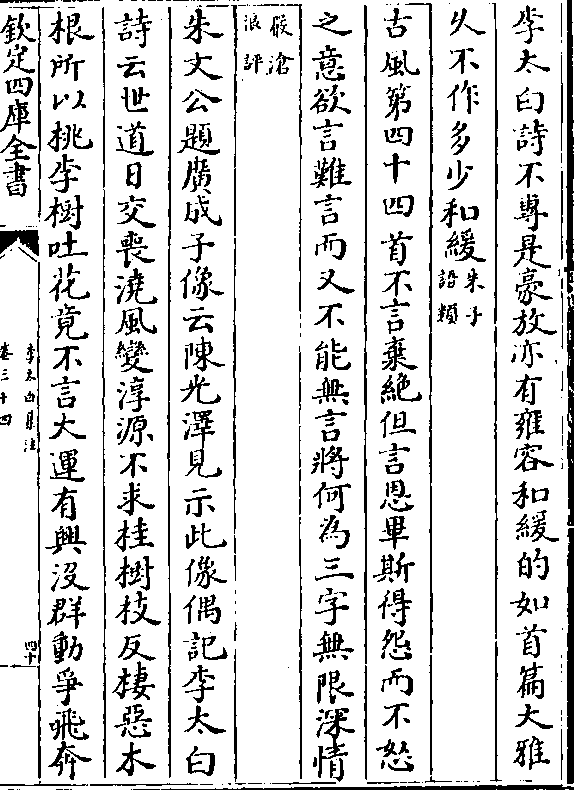 李太白詩不專是豪放亦有雍容和緩的如首篇大雅
久不作多少和緩朱子
語類
古風第四十四首不言棄絶但言恩畢斯得怨而不怒
之意欲言難言而又不能無言將何為三字無限深情
嚴滄
浪評
朱文公題廣成子像云陳光澤見示此像偶記李太白
詩云世道日交喪澆風變淳源不求桂樹枝反棲惡木
根所以桃李樹吐花竟不言大運有興沒群動爭飛奔
欽定四庫全書
李太白集注
卷三十四
四十